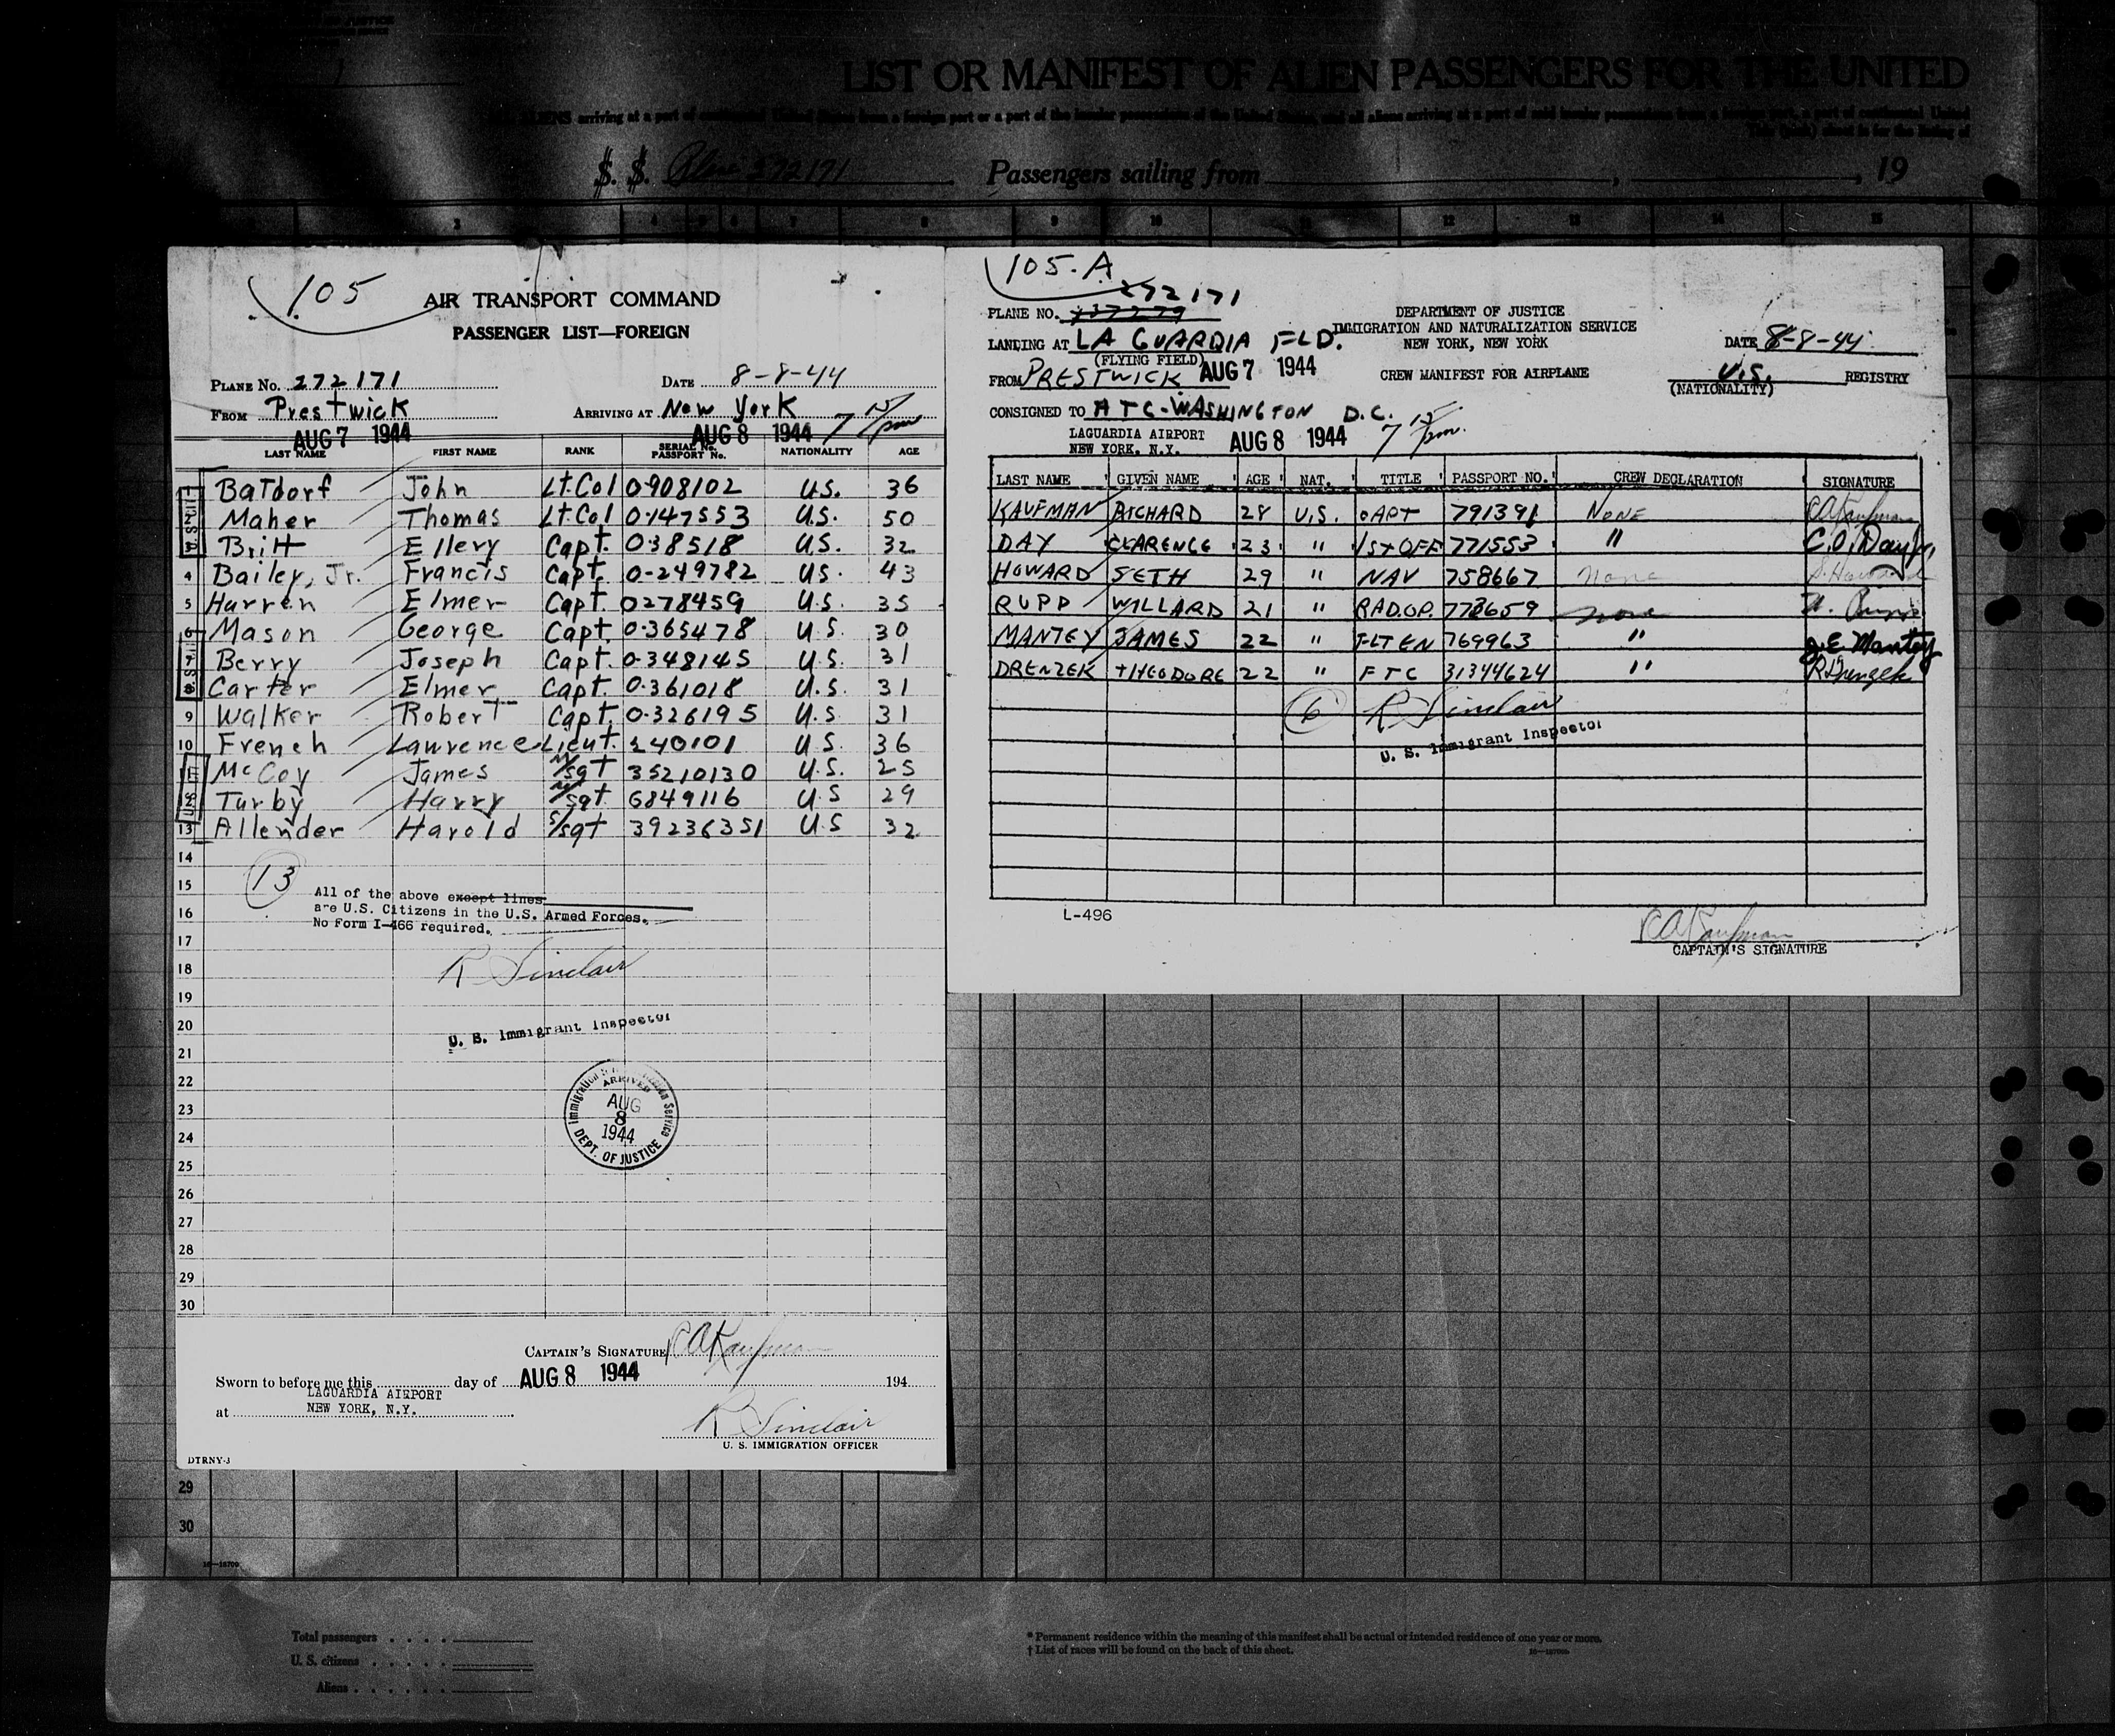 LIST OR MANIFEST OF ALIEN PASSENGERS FOR THE UNITED
ALIENS arriving at a port of continental United States from a foreign port or a port of the insular possessions of the United States, and all aliens arriving at a port of said insular possessions from a foreign port, a port of continental United
This (pink) sheet is for the listing of
S. S. Plane 272171 Passengers sailing from , , 19
3 4 5 6 7 8 9 10 11 12 13 14 15
105
AIR TRANSPORT COMMAND
PASSENGER LIST—FOREIGN
PLANE No. 272171 DATE 8-8-44
FROM Prestwick ARRIVING AT New York 7 15/pm
AUG 7 1944 AUG 8 1944
LAST NAME FIRST NAME RANK SERIAL No. PASSPORT No. NATIONALITY AGE
Batdorf John Lt.Col 0-908102 U.S. 36
Maher Thomas Lt.Col 0-147553 U.S. 50
Britt Ellery Capt. 0-38518 U.S. 32
4 Bailey, Jr. Francis Capt. 0-249782 U.S. 43
5 Harren Elmer Capt. 0278459 U.S. 35
6 Mason George Capt. 0-365478 U.S. 30
7 Berry Joseph Capt. 0-348145 U.S. 31
8 Carter Elmer Capt. 0-361018 U.S. 31
9 Walker Robert Capt. 0-326195 U.S 31
10 French Lawrence Lieut. 240101 U.S. 36
McCoy James M/sgt 35210130 U.S. 25
Turby Harry M/sgt 6849116 U.S 29
13 Allender Harold S/sgt 39236351 U.S 32
14
15
16
17
18
19
20
21
22
23
24
25
26
27
28
29
30
13
All of the above except lines
are U.S. Citizens in the U.S. Armed Forces.
No Form I-466 required.
R Sinclair
U. S. Immigrant Inspector
Immigration & Naturalization Service
ARRIVED
AUG
8
1944
DEPT. OF JUSTICE
CAPTAIN'S SIGNATURE RAKaufman
Sworn to before me this day of AUG 8 1944 194
LAGUARDIA AIRPORT
at NEW YORK, N.Y.
R Sinclair
U. S. IMMIGRATION OFFICER
DTRNY-3
105.A
272171
PLANE NO.
LANDING AT LA GUARDIA FLD.
(FLYING FIELD)
FROM PRESTWICK AUG 7 1944
CONSIGNED TO ATC-WASHINGTON D.C.
LAGUARDIA AIRPORT
NEW YORK, N.Y. AUG 8 1944 7 15/pm.
DEPARTMENT OF JUSTICE
IMMIGRATION AND NATURALIZATION SERVICE
NEW YORK, NEW YORK
CREW MANIFEST FOR AIRPLANE
DATE 8-8-44
U.S. REGISTRY
(NATIONALITY)
LAST NAME GIVEN NAME AGE NAT. TITLE PASSPORT NO. CREW DECLARATION SIGNATURE
KAUFMAN RICHARD 28 U.S. CAPT 791391 NONE RAKaufman
DAY CLARENCE 23 " 1ST OFF 771553 " C.O. Day Jr.
HOWARD SETH 29 " NAV 758667 none S. Howard
RUPP WILLARD 21 " RAD.OP. 773659 none W. Rupp
MANTEY JAMES 22 " FLT EN 769963 " J.E. Mantey
DRENZEK THEODORE 22 " FTC 31344624 " Drenzek
6 R Sinclair
U. S. Immigrant Inspector
L-496
RAKaufman
CAPTAIN'S SIGNATURE
29
30
16—18700
Total passengers
U. S. citizens
Aliens
* Permanent residence within the meaning of this manifest shall be actual or intended residence of one year or more.
† List of races will be found on the back of this sheet.